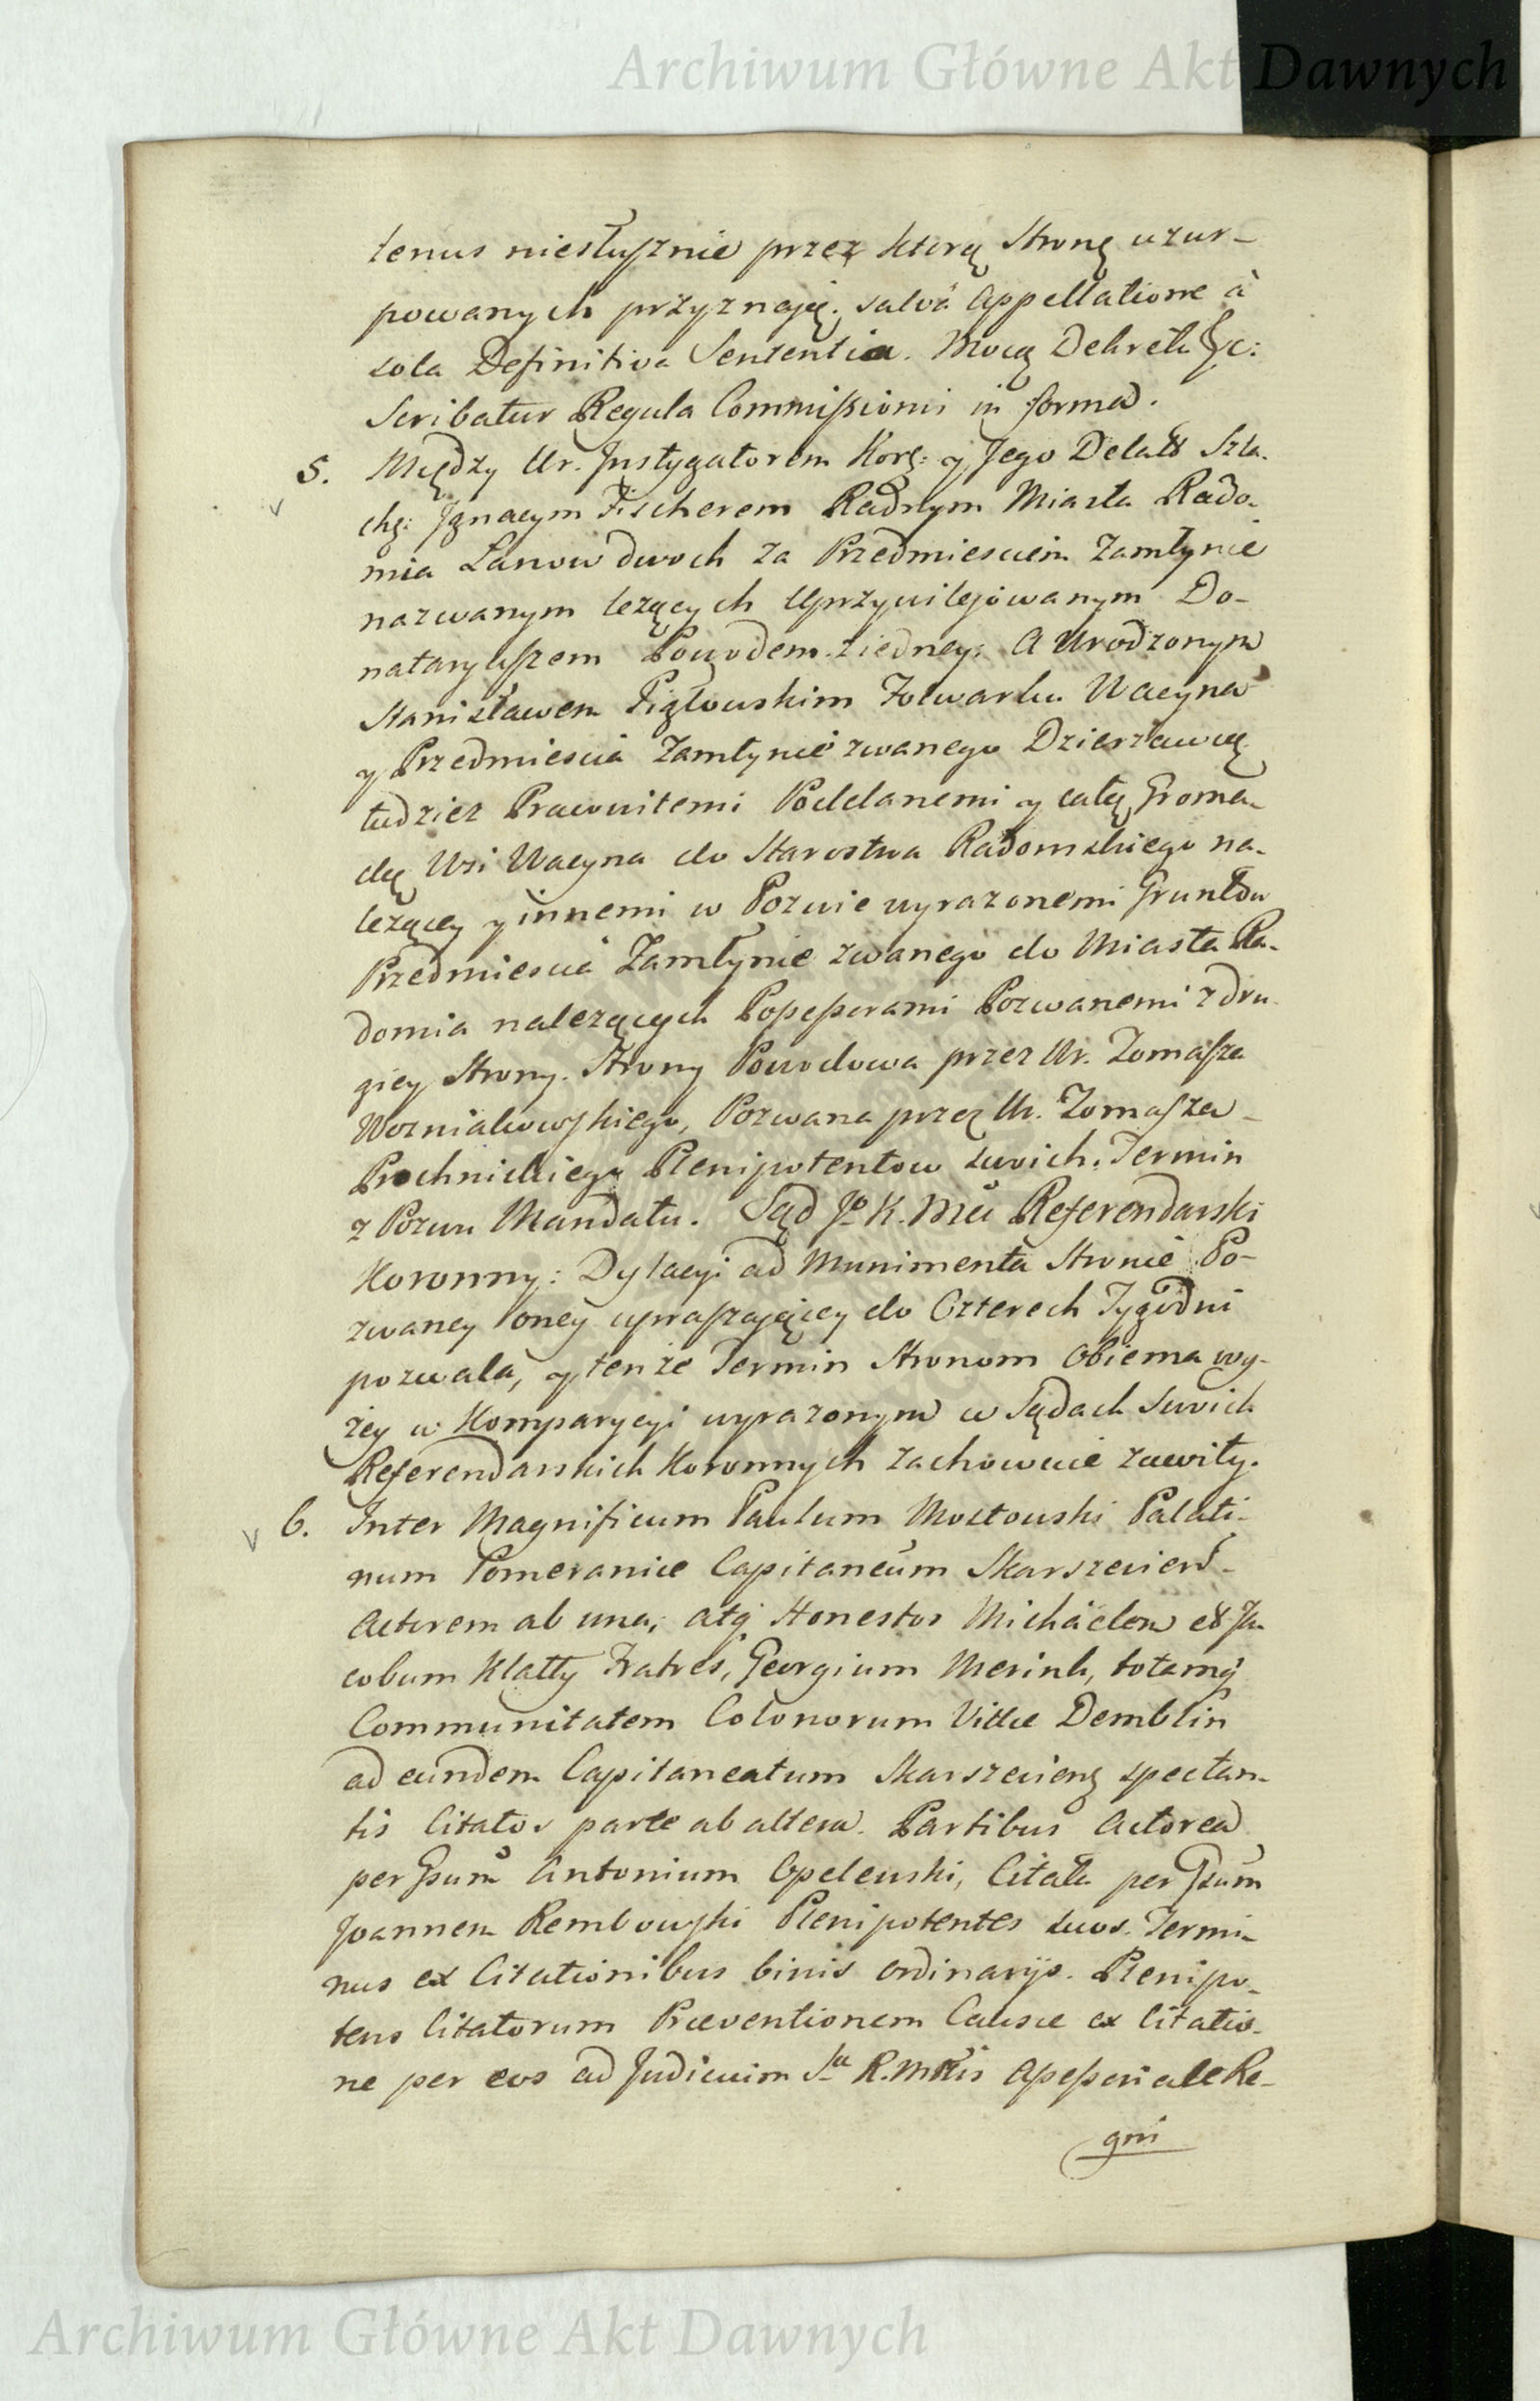 Archiwum Główne Akt Dawnych
tenus niesłusznie przez ktorą Stronę uzur-
powanych przyznaję. salvâ Appellatione à
sola Definitiva Sententia. Mocą Dekretu &c:
Scribatur Regula Commissioni in forma.
5. Między Ur. Instygatorem Kor: y Jego Delat Szla-
che: Ignacym Fischerem Radnym Miasta Rado-
mia Łanow dwoch za Przedmiesciem Zamłynie
nazwanym lezących Uprzywilejowanym Do-
nataryuszem Powodem z iedney; A Urodzonym
Stanisławem Folwarku Wacyna
y Przedmiescia Zamłynie zwanego Dzierzawcą
tudziez Pracowitemi Poddanemi y całą Groma-
dą Wsi Wacyna do Starostwa Radomskiego na-
lezącey y innemi w Pozwie wyrazonemi Gruntow
Przedmiescia Zamłynie zwanego do Miasta Ra-
domia nalezących Possessorami Pozwanemi z dru-
giey Strony. Strony Powodowa przez Ur. Tomasza
Wozniakowskiego, Pozwana przez Ur. Tomasza
Prochnickiego Plenipotentow swoich. Termin
z Pozwu Mandatu. Sąd Jo K. Mci Referendarski
Koronny: Dylacyi ad Munimenta Stronie Po-
zwaney oney upraszaiącey do Czterech Tygodni
pozwala, y tenże Termin Stronom Obiema wy-
żey w Komparycyi wyrazonym w Sądach Swoich
Referendarskich Koronnych zachowuie zawity.
6. Inter Magnificum Paulum Mostowski Palati-
num Pomeraniæ Capitaneum Skarszevien
Actorem ab una; atq Honestos Michaelem et Ja
cobum Klatty Fratres, Georgium Merink, totamq
Communitatem Colonorum Villæ Demblin
ad eundem Capitaneatum Skarszeviens spectan-
tis Citatos parte ab altera. Partibus Actorea
per Gsum Antonium Opelewski, Citata per Gsum
Joannem Rembowski Plenipotentes suos. Termi-
nus ex Citationibus binis ordinarijs. Plenipo-
tens Citatorum Præventionem Causæ ex Citatio-
ne per eos ad Judicium Sa R. Mttis Assessoriale Re-
gni
Archiwum Główne Akt Dawnych